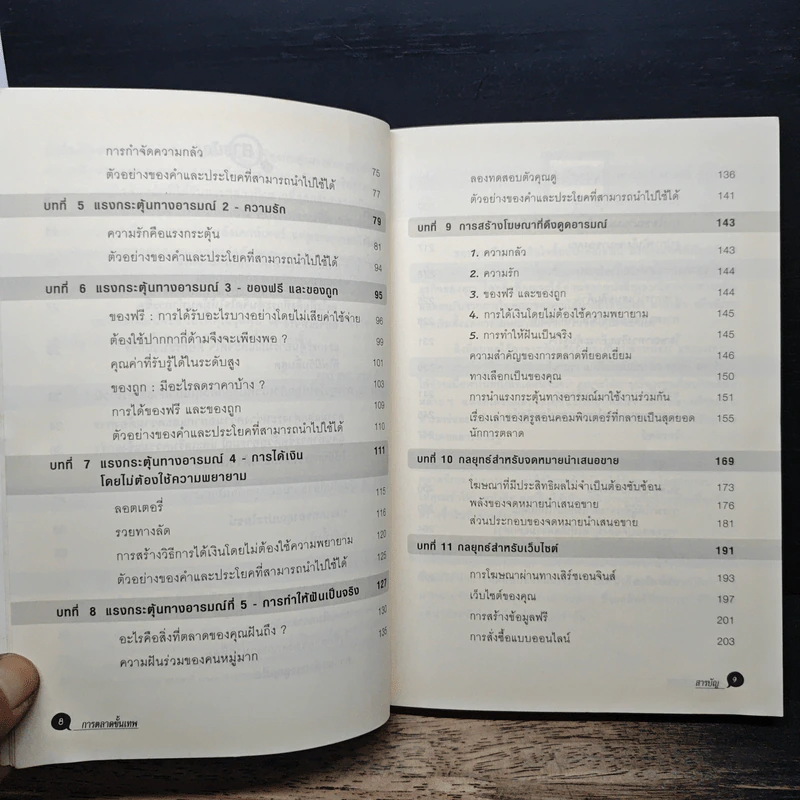 การกำจัดความกลัว 75
ตัวอย่างของคำและประโยคที่สามารถนำไปใช้ได้ 77
บทที่ 5 แรงกระตุ้นทางอารมณ์ 2 - ความรัก 79
ความรักคือแรงกระตุ้น 81
ตัวอย่างของคำและประโยคที่สามารถนำไปใช้ได้ 94
บทที่ 6 แรงกระตุ้นทางอารมณ์ 3 - ของฟรี และของถูก 95
ของฟรี : การได้รับอะไรบางอย่างโดยไม่เสียค่าใช้จ่าย 96
ต้องใช้ปากกากี่ด้ามจึงจะเพียงพอ ? 99
คุณค่าที่รับรู้ได้ในระดับสูง 101
ของถูก : มีอะไรลดราคาบ้าง ? 103
การได้ของฟรี และของถูก 109
ตัวอย่างของคำและประโยคที่สามารถนำไปใช้ได้ 110
บทที่ 7 แรงกระตุ้นทางอารมณ์ 4 - การได้เงิน 111
โดยไม่ต้องใช้ความพยายาม
ลอตเตอรี่ 115
รวยทางลัด 116
การสร้างวิธีการได้เงินโดยไม่ต้องใช้ความพยายาม 120
ตัวอย่างของคำและประโยคที่สามารถนำไปใช้ได้ 125
บทที่ 8 แรงกระตุ้นทางอารมณ์ที่ 5 - การทำให้ฝันเป็นจริง 127
อะไรคือสิ่งที่ตลาดของคุณฝันถึง ? 130
ความฝันร่วมของคนหมู่มาก 135
8 การตลาดขั้นเทพ
ลองทดสอบตัวคุณดู 136
ตัวอย่างของคำและประโยคที่สามารถนำไปใช้ได้ 141
บทที่ 9 การสร้างโฆษณาที่ดึงดูดอารมณ์ 143
1. ความกลัว 143
2. ความรัก 144
3. ของฟรี และของถูก 144
4. การได้เงินโดยไม่ต้องใช้ความพยายาม 145
5. การทำให้ฝันเป็นจริง 145
ความสำคัญของการตลาดที่ยอดเยี่ยม 146
ทางเลือกเป็นของคุณ 150
การนำแรงกระตุ้นทางอารมณ์มาใช้งานร่วมกัน 151
เรื่องเล่าของครูสอนคอมพิวเตอร์ที่กลายเป็นสุดยอด 155
นักการตลาด
บทที่ 10 กลยุทธ์สำหรับจดหมายนำเสนอขาย 169
โฆษณาที่มีประสิทธิผลไม่จำเป็นต้องซับซ้อน 173
พลังของจดหมายนำเสนอขาย 176
ส่วนประกอบของจดหมายนำเสนอขาย 181
บทที่ 11 กลยุทธ์สำหรับเว็บไซต์ 191
การโฆษณาผ่านทางเสิร์ชเอนจินส์ 193
เว็บไซต์ของคุณ 197
การสร้างข้อมูลฟรี 201
การสั่งซื้อแบบออนไลน์ 203
สารบัญ 9